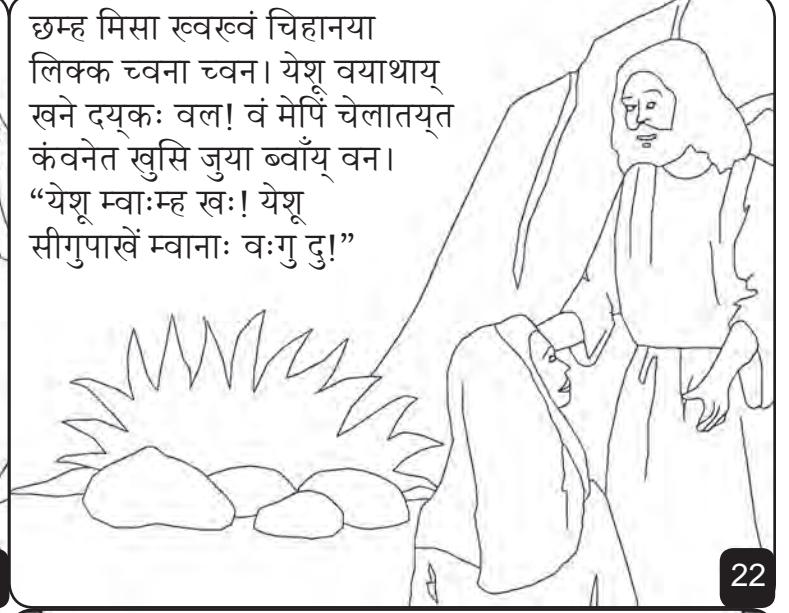 छम्ह मिसा ख्वख्वं चिहानया
लिक्क च्वना च्वन। येशू वयाथाय्
खने दय्‌कः वल! वं मेपिं चेलातय्‌त
कंवनेत खुसि जुया ब्वाँय् वन।
“येशू म्वाःम्ह खः! येशू
सीगुपाखें म्वानाः वःगु दु!”
22